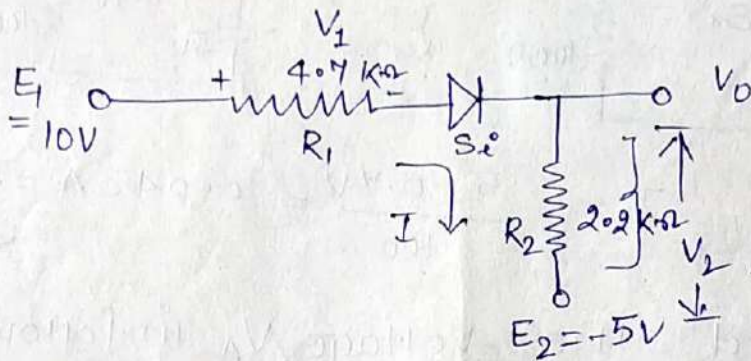 V₁
E₁ = 10V
+ 4.7 KΩ -
R₁
Si
V₀
I
R₂
2.2 KΩ
V₂
E₂ = -5V